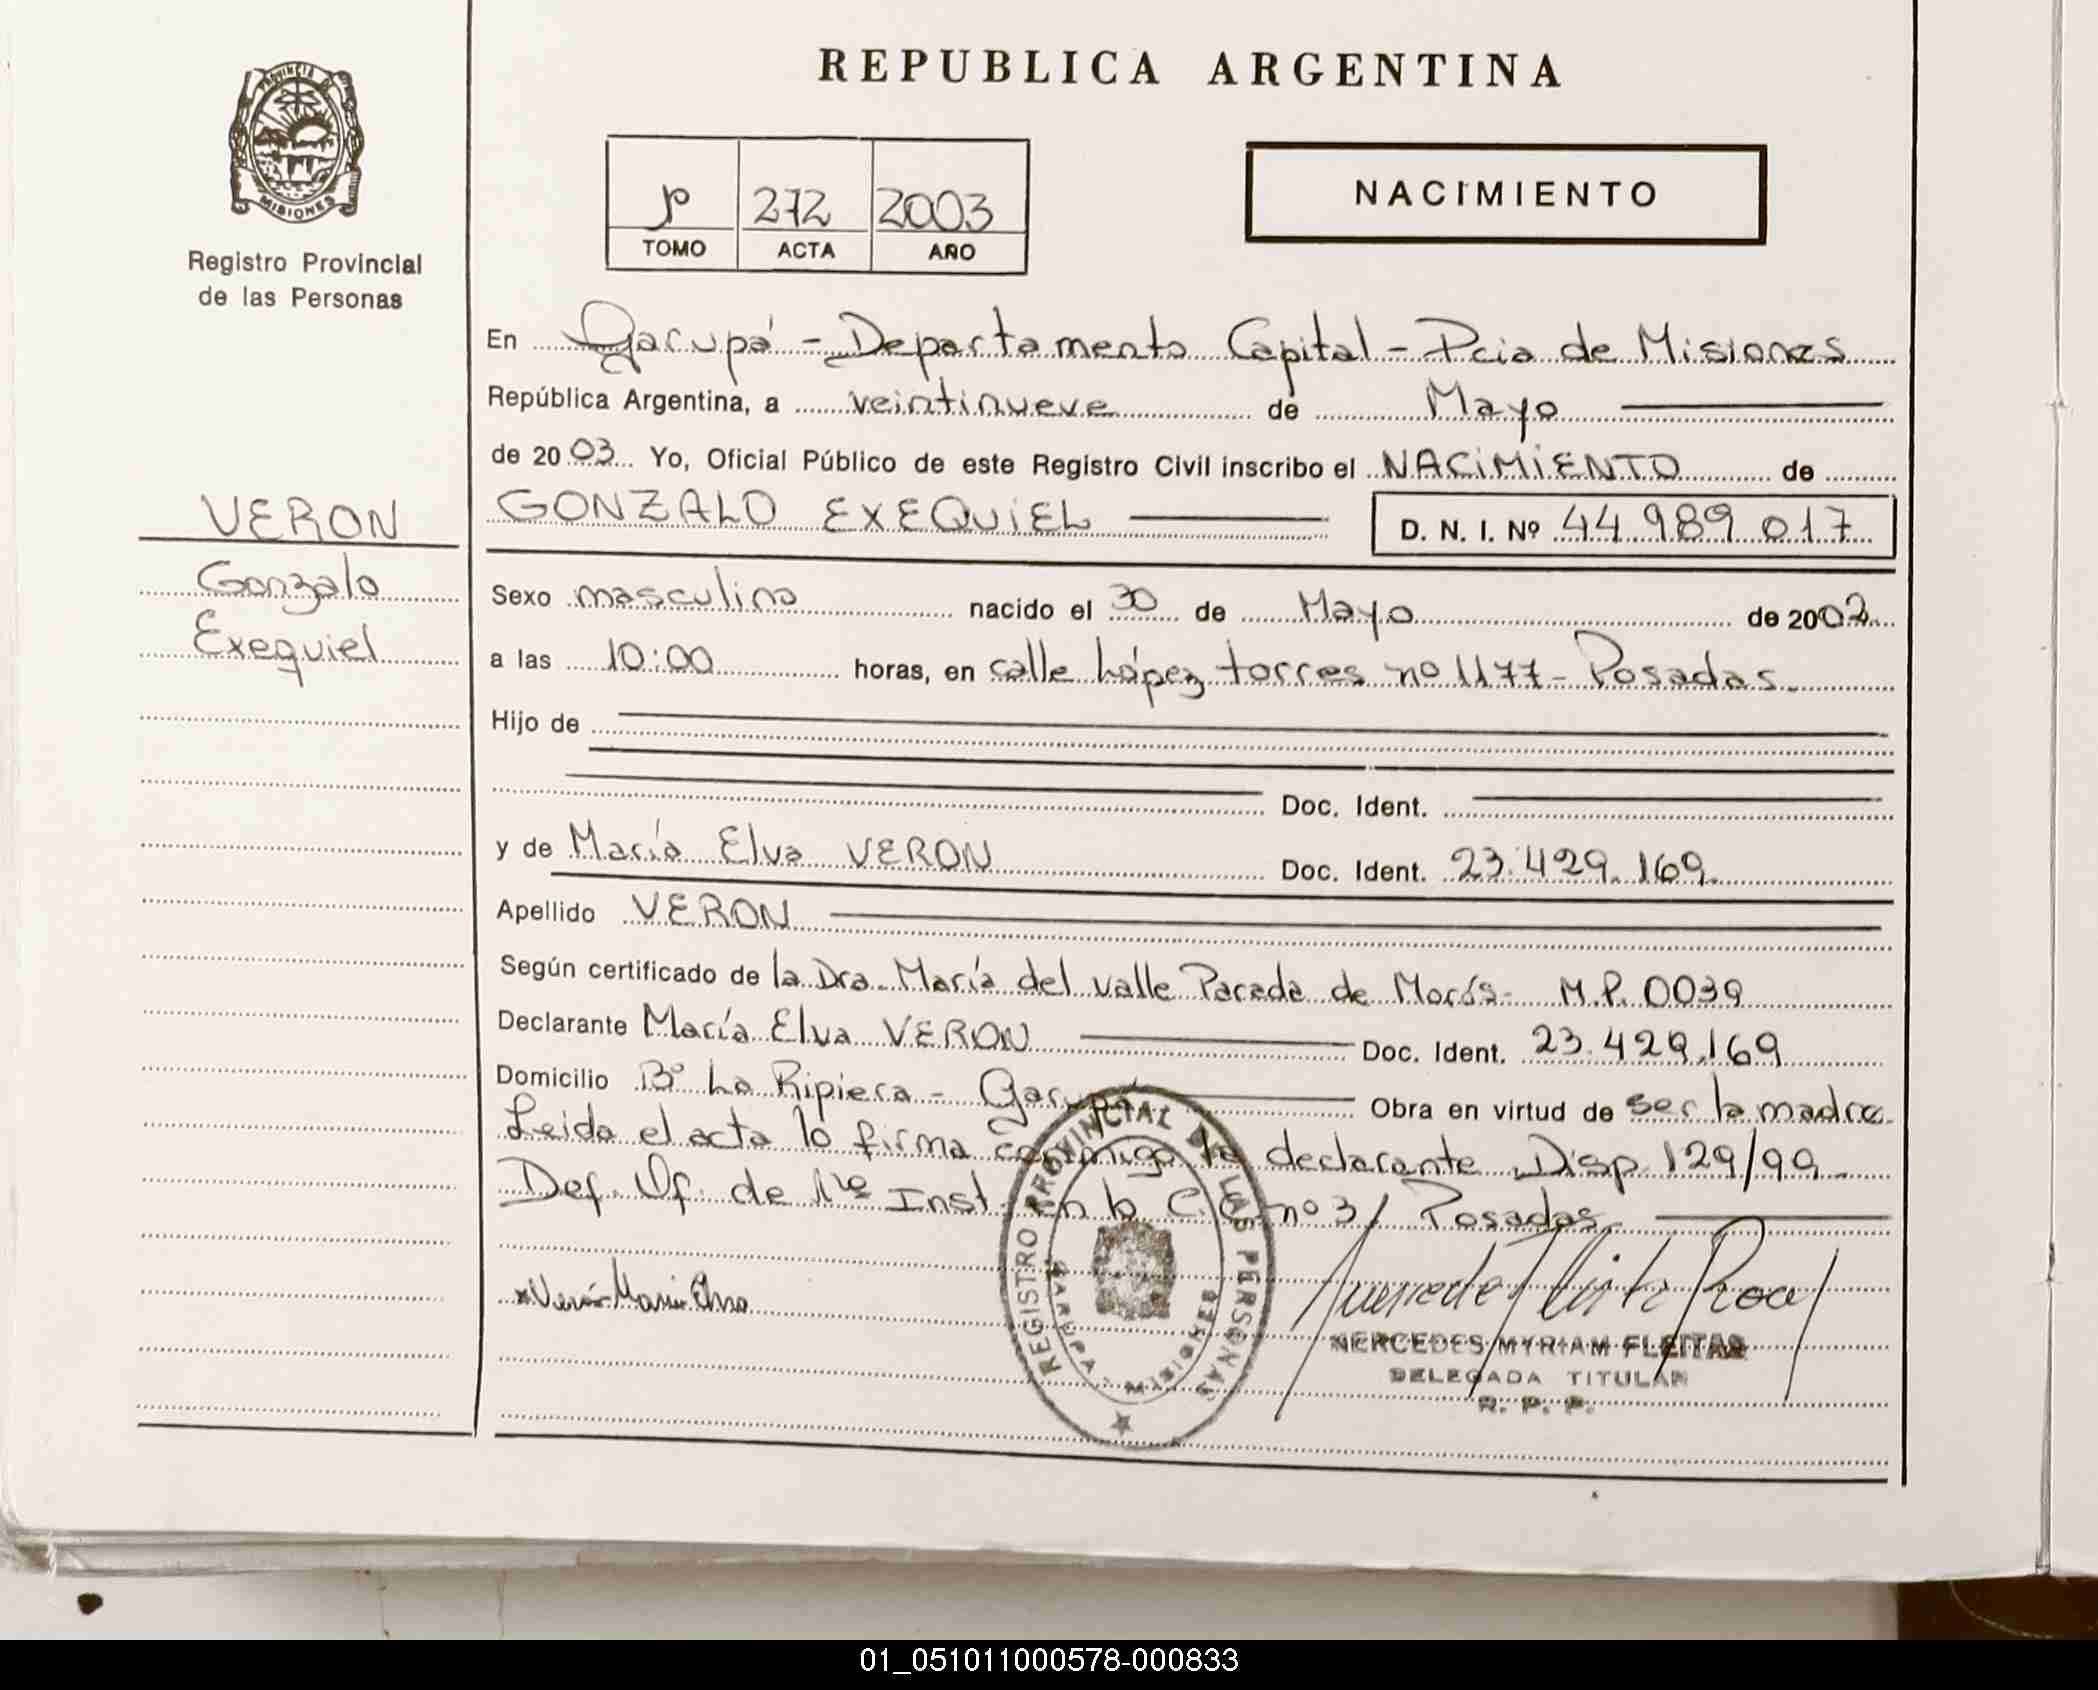 REPUBLICA ARGENTINA
PROVINCIA DE
MISIONES
Registro Provincial
de las Personas
272 2003
TOMO ACTA AÑO
NACIMIENTO
En Garupá - Departamento Capital - Pcia de Misiones
República Argentina, a veintinueve de Mayo
de 2003 Yo, Oficial Público de este Registro Civil inscribo el NACIMIENTO de
GONZALO EXEQUIEL D. N. I. Nº 44.989.017
VERON
Gonzalo
Exequiel
Sexo masculino nacido el 30 de Mayo de 2002
a las 10:00 horas, en calle López torres nº 1177 - Posadas.
Hijo de
Doc. Ident.
y de María Elva VERON Doc. Ident. 23.429.169
Apellido VERON
Según certificado de la Dra. María del valle Parada de Morós - M.P. 0039
Declarante María Elva VERON Doc. Ident. 23.429.169
Domicilio Bº La Ripiera - Garupá Obra en virtud de ser la madre.
Leida el acta lo firma conmigo la declarante Disp 129/99
Def. Of. de 1ra Inst. en lo C. C. nº 3 / Posadas
Verón María Elva
REGISTRO PROVINCIAL DE LAS PERSONAS
GARUPA - MISIONES
MERCEDES MYRIAM FLEITAS
DELEGADA TITULAR
R. P. P.
01_051011000578-000833